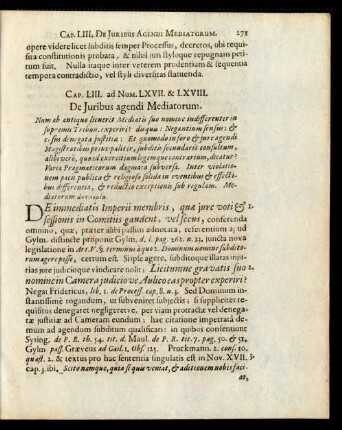 CAP. LIII, DE JURIBUS AGENDI MEDIATORUM. 275
opere videre licet subditis semper Processus, decretos, ubi requi-
sita constitutionis probata, & nihil juri styloque repugnans peti-
tum fuit. Nulla itaque inter veterem prudentium & sequentia
tempora contradictio, vel styli diversitas statuenda.
CAP. LIII. ad NUM. LXVII. & LXVIII.
De Juribus agendi Mediatorum.
Num ab antiquo licuerit Mediatis suo nomine indifferenter in
supremis Tribun. experiri? diu qua: Negantium sensus; &
si denegata justitia: Et quomodo in foro & jure agendi
Magistratibus principaliter, subditis secundario consultum,
alibi verò, quoad exercitium legemque contrariam, dicatur?
Varia Pragmaticarum dogmata subversa. Inter violatio-
nem pacis publicæ & religiosæ solida in eventibus & effecti-
bus differentia, & reductio exceptionis sub regulam. Me-
diatorum
DE immediatis Imperii membris, quæ jure voti &
sessionis in Comitiis gaudent, vel secus, conferenda
omnino, quæ, præter alibi passim adnotata, referentium ad
Gylm. distinctè proponit Gylm. d. l. pag. 262. n. 23. juncta nova
legislatione in Art. V. §. terminus à quo 2. Dominum nomine subdito-
rum agere posse, certum est. Si ipse agere, subditoque illatas inju-
rias jure judicioque vindicare nolit: Licitumne gravatis suo
nomine in Camera judicio ve Aulico ea spropter experiri?
Negat Fridericus, lib. 1. de Process. cap. 8. n. 3. Sed Dominum in-
stantissimè rogandum, ut subveniret subjectis; si suppliciter re-
quisitus denegaret negligeretve, per viam protractæ vel denega-
tæ justitiæ ad Cameram eundum; hac citatione impetratâ de-
mum ad agendum subditum qualificari: in quibus consentiunt
Syring. de P. R. th. 54. tit. d. Maul. de P. R. tit. 7. pag. 50. & 51.
Gylm post. Græveus ad Gail. 1. Obs. 125. Pruckmann. 2. cons. 10.
quæst. 2. & textus pro hac sententia singulatis est in Nov. XVII.
cap. 3. ibi. Scito namque, quia si quis veniat, & aditionem nobis faci-
at,